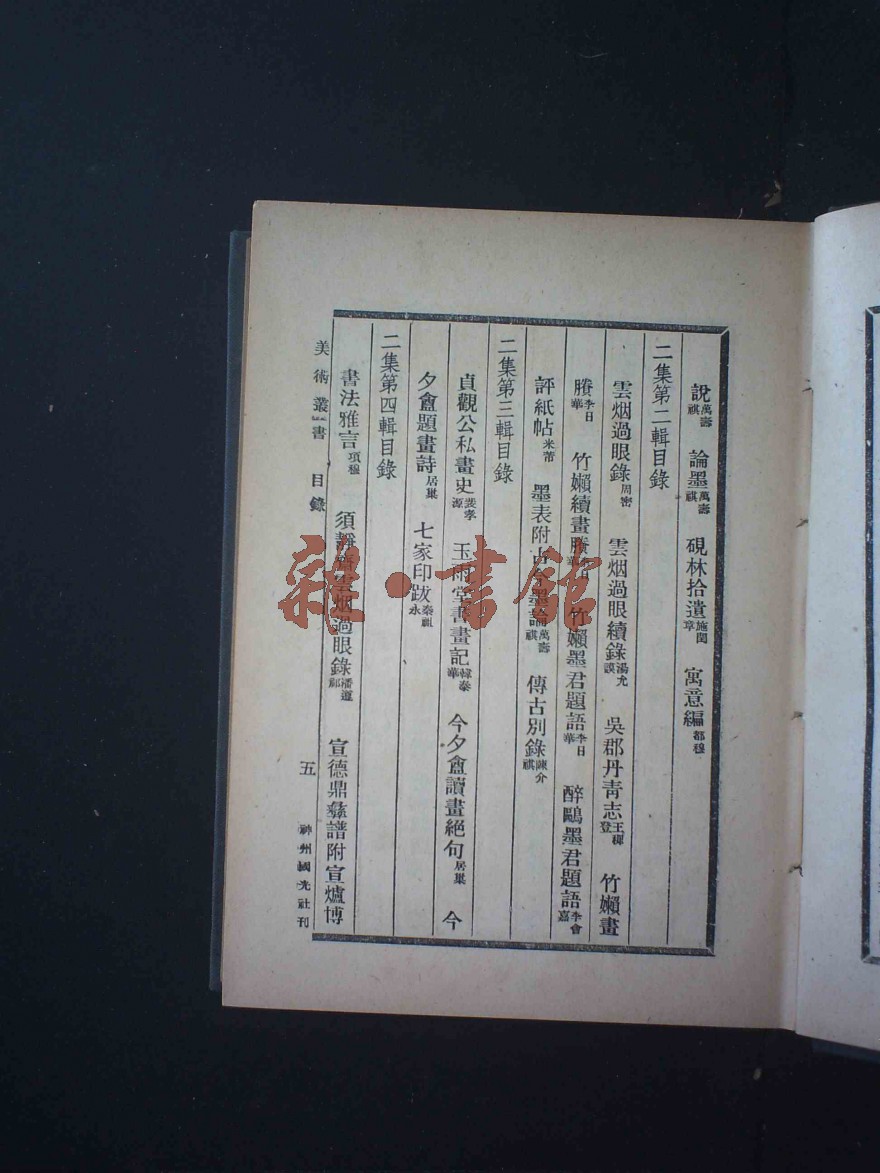 說萬壽祺 論墨萬壽祺 硯林拾遺施閏章 寓意編都穆
二集第二輯目錄
雲烟過眼錄周密 雲烟過眼續錄湯允謨 吳郡丹青志王穉登 竹嬾畫
賸李日華 竹嬾續畫賸李日華 竹嬾墨君題語李日華 醉鷗墨君題語李會嘉
評紙帖米芾 墨表附古今墨論萬壽祺 傳古別錄陳介祺
二集第三輯目錄
貞觀公私畫史裴孝源 玉雨堂書畫記韓泰華 今夕盦讀畫絕句居巢 今
夕盦題畫詩居巢 七家印跋秦祖永
二集第四輯目錄
書法雅言項穆 須靜齋雲烟過眼錄潘遵祁 宣德鼎彝譜附宣爐博
美術叢書 目錄 五 神州國光社刊
雜·書館